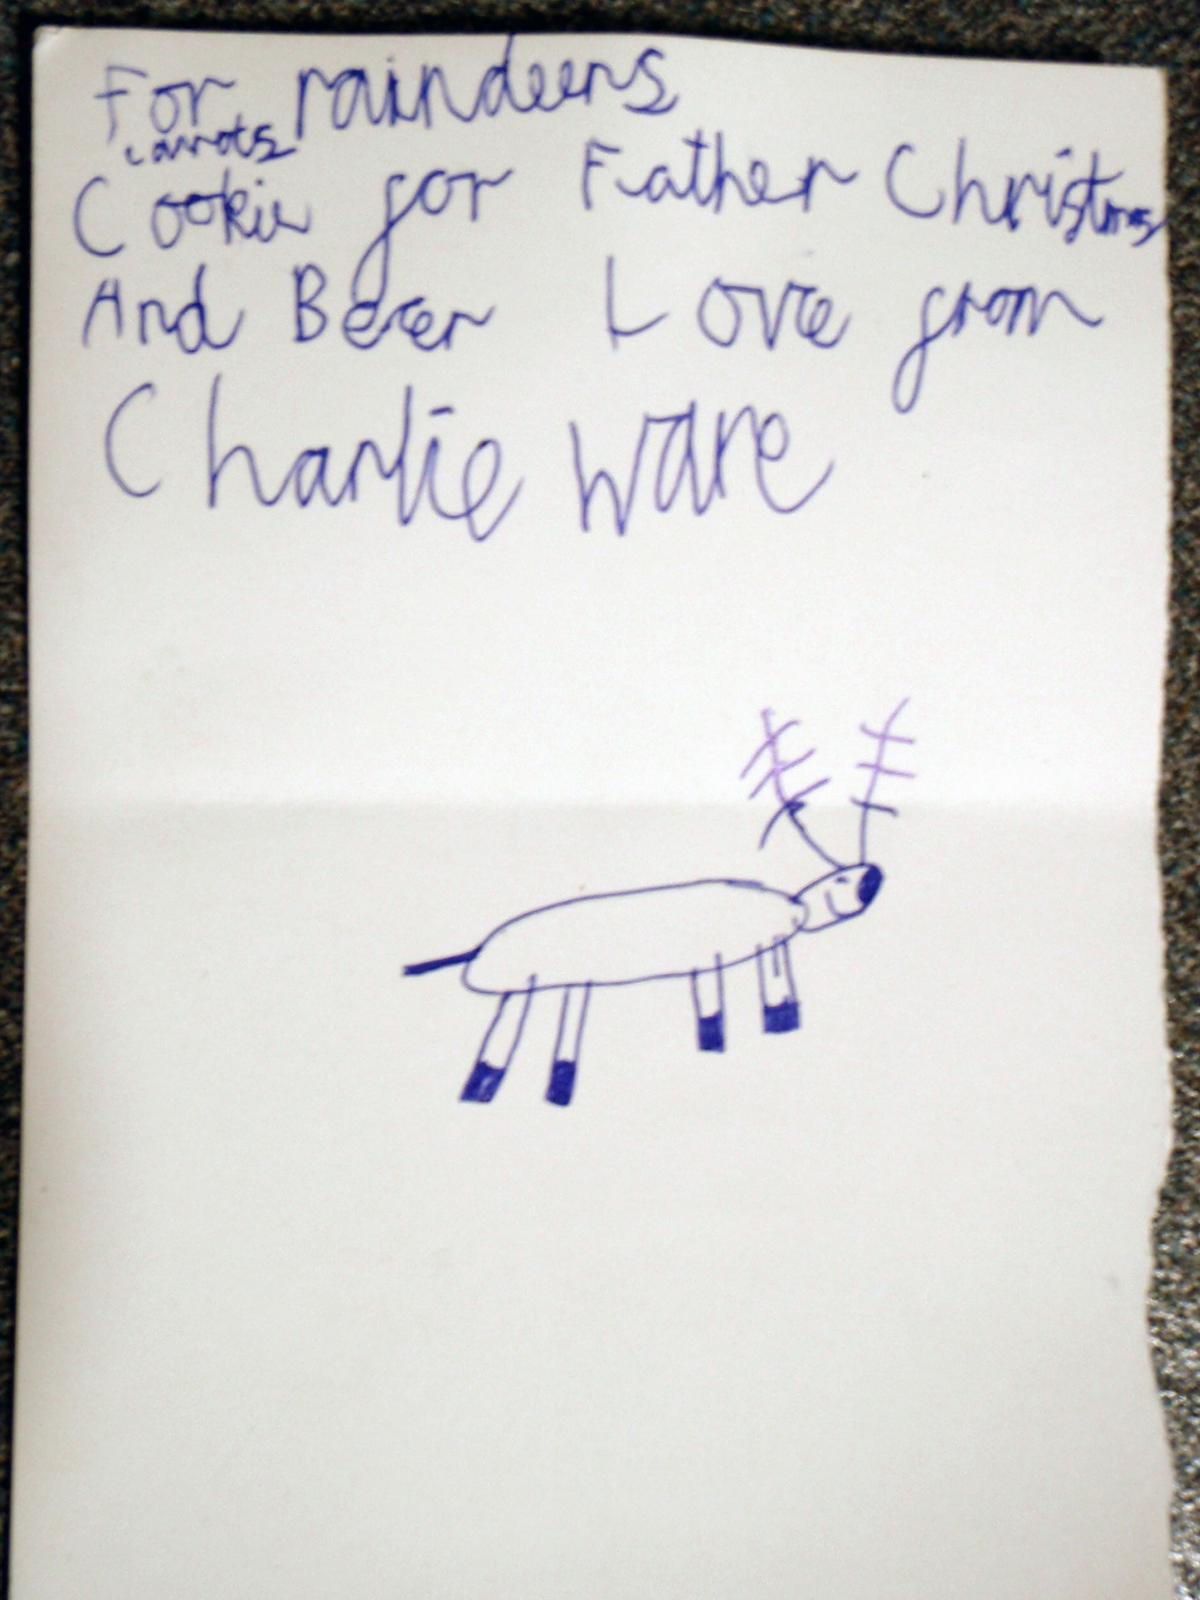 For raindeers
carrots
Cookie for Father Christmas
And Beer Love from
Charlie Ware